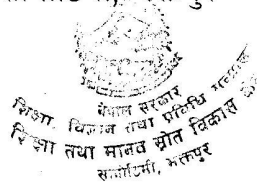 नेपाल सरकार
शिक्षा, विज्ञान तथा प्रविधि
शिक्षा तथा मानव स्रोत विकास
सानोठिमी, भक्तपुर